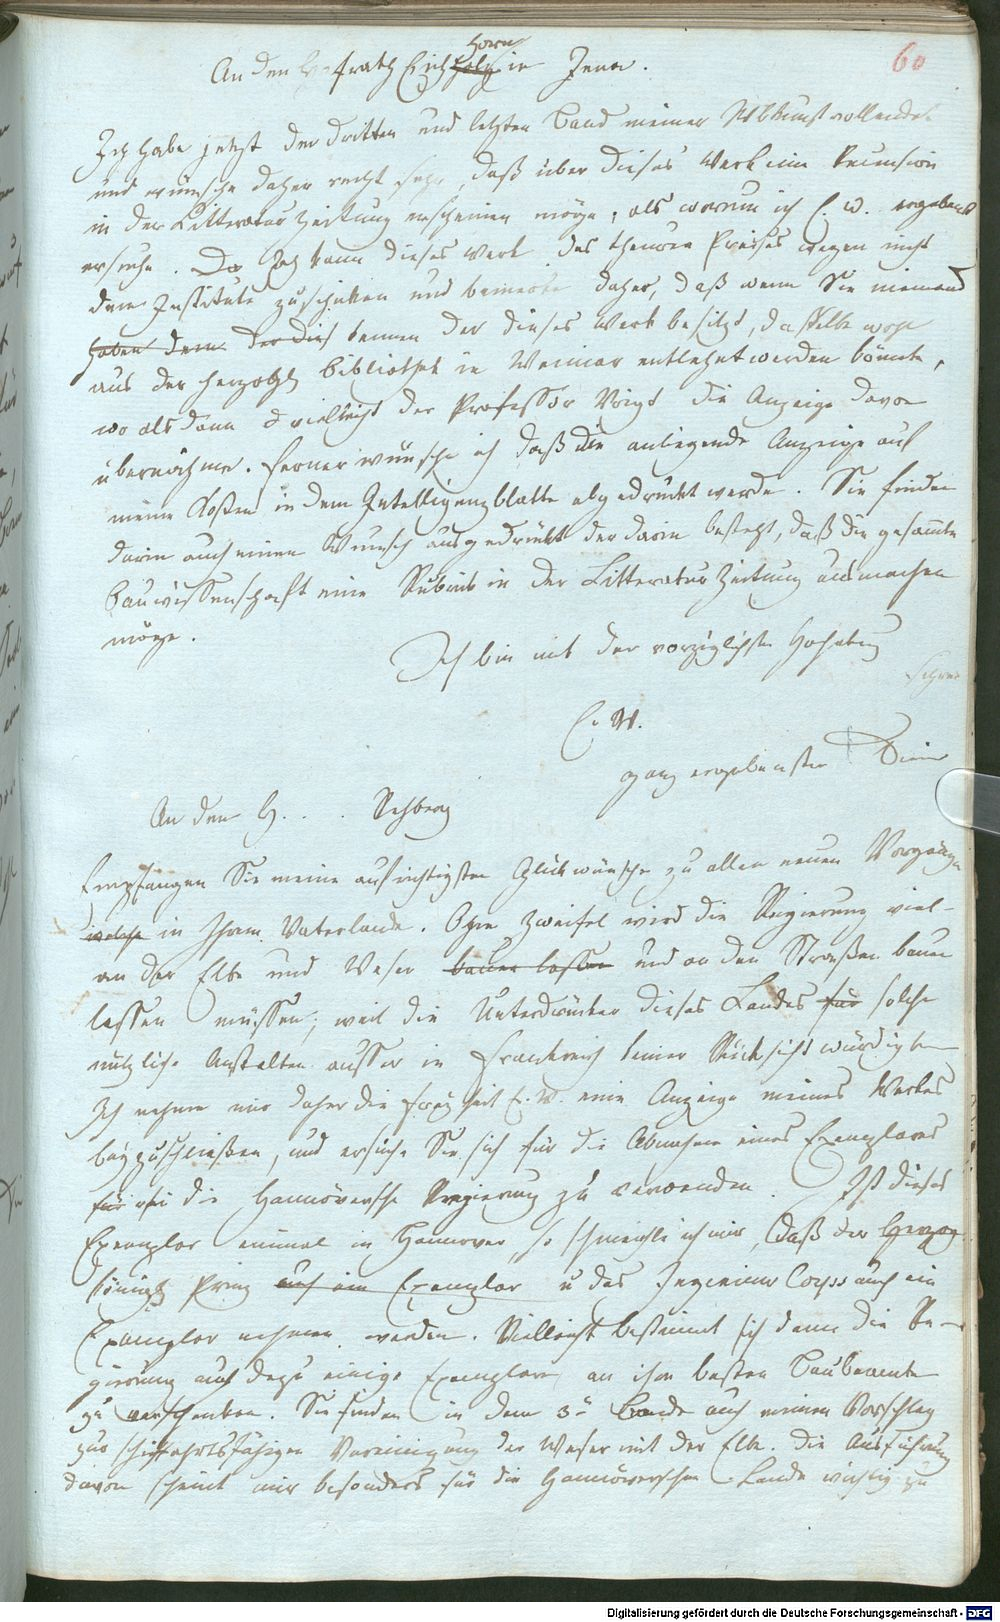 Horn
An den Hofrath Eichholz in Jena.
60
Ich habe jetzt den dritten und letzten Band meiner Wbkunst vollendet
und wünsche daher recht sehr, daß über dieses Werk eine Recension
in der Litteratur Zeitung erscheinen möge, als warum ich E. W. ergebenst
ersuche. Da Ich kann dieses Werk des theuren Preises wegen nicht
dem Institute zuschicken und bemerke daher, daß wenn Sie niemand
haben dem der dies kennen der dieses Werk besitzt, dasselbe wohl
aus der herzogl. Bibliothek in Weimar entlehnt werden könnte,
wo alsdann vielleicht der Professor Voigt die Anzeige davon
übernähme. Ferner wünsche ich daß die anliegende Anzeige auf
meine Kosten in dem Intelligenzblatte abgedruckt werde. Sie finden
darin auch einen Wunsch ausgedrückt der darin besteht, daß die gesammte
Bauwissenschaft eine Rubrik in der Litteratur Zeitung ausmachen
möge.
Ich bin mit der vorzüglichsten Hochachtung
E. W.
ganz ergebenster Diener
An den H. . . Rehberg
Empfangen Sie meine aufrichtigsten Glückwünsche zu allen neuen Vorgängen
welche in Ihrem Vaterlande. Ohne Zweifel wird die Regierung viel
an der Elbe und Weser bauen lassen und an den Straßen bauen
lassen müssen, weil die Unterdrücker dieses Landes für solche
nützliche Anstalten ausser in Frankreich keiner Rücksicht würdigten
Ich nehme mir daher die Freyheit E. W. eine Anzeige meines Werkes
beyzuschließen, und ersuche Sie sich für die Abnahme eines Exemplares
für die Hannöversche Regierung zu verwenden. Ist dieses
Exemplar einmal in Hannover, so schmeichle ich mir, daß der Herzog
königl. Prinz auch ein Exemplar u das Ingenieur Corps auch ein
Exemplar nehmen werden. Vielleicht bestimmt sich dann die Re-
gierung auch dazu einige Exemplare an ihre besten Baubeamte
zu verschenken. Sie finden in dem 3n Bande auch meinen Vorschlag
zur schiffahrtsfähigen Vereinigung der Weser mit der Elbe. Die Ausführung
davon scheint mir besonders für die Hannöverschen Lande wichtig zu
Digitalisierung gefördert durch die Deutsche Forschungsgemeinschaft - DFG